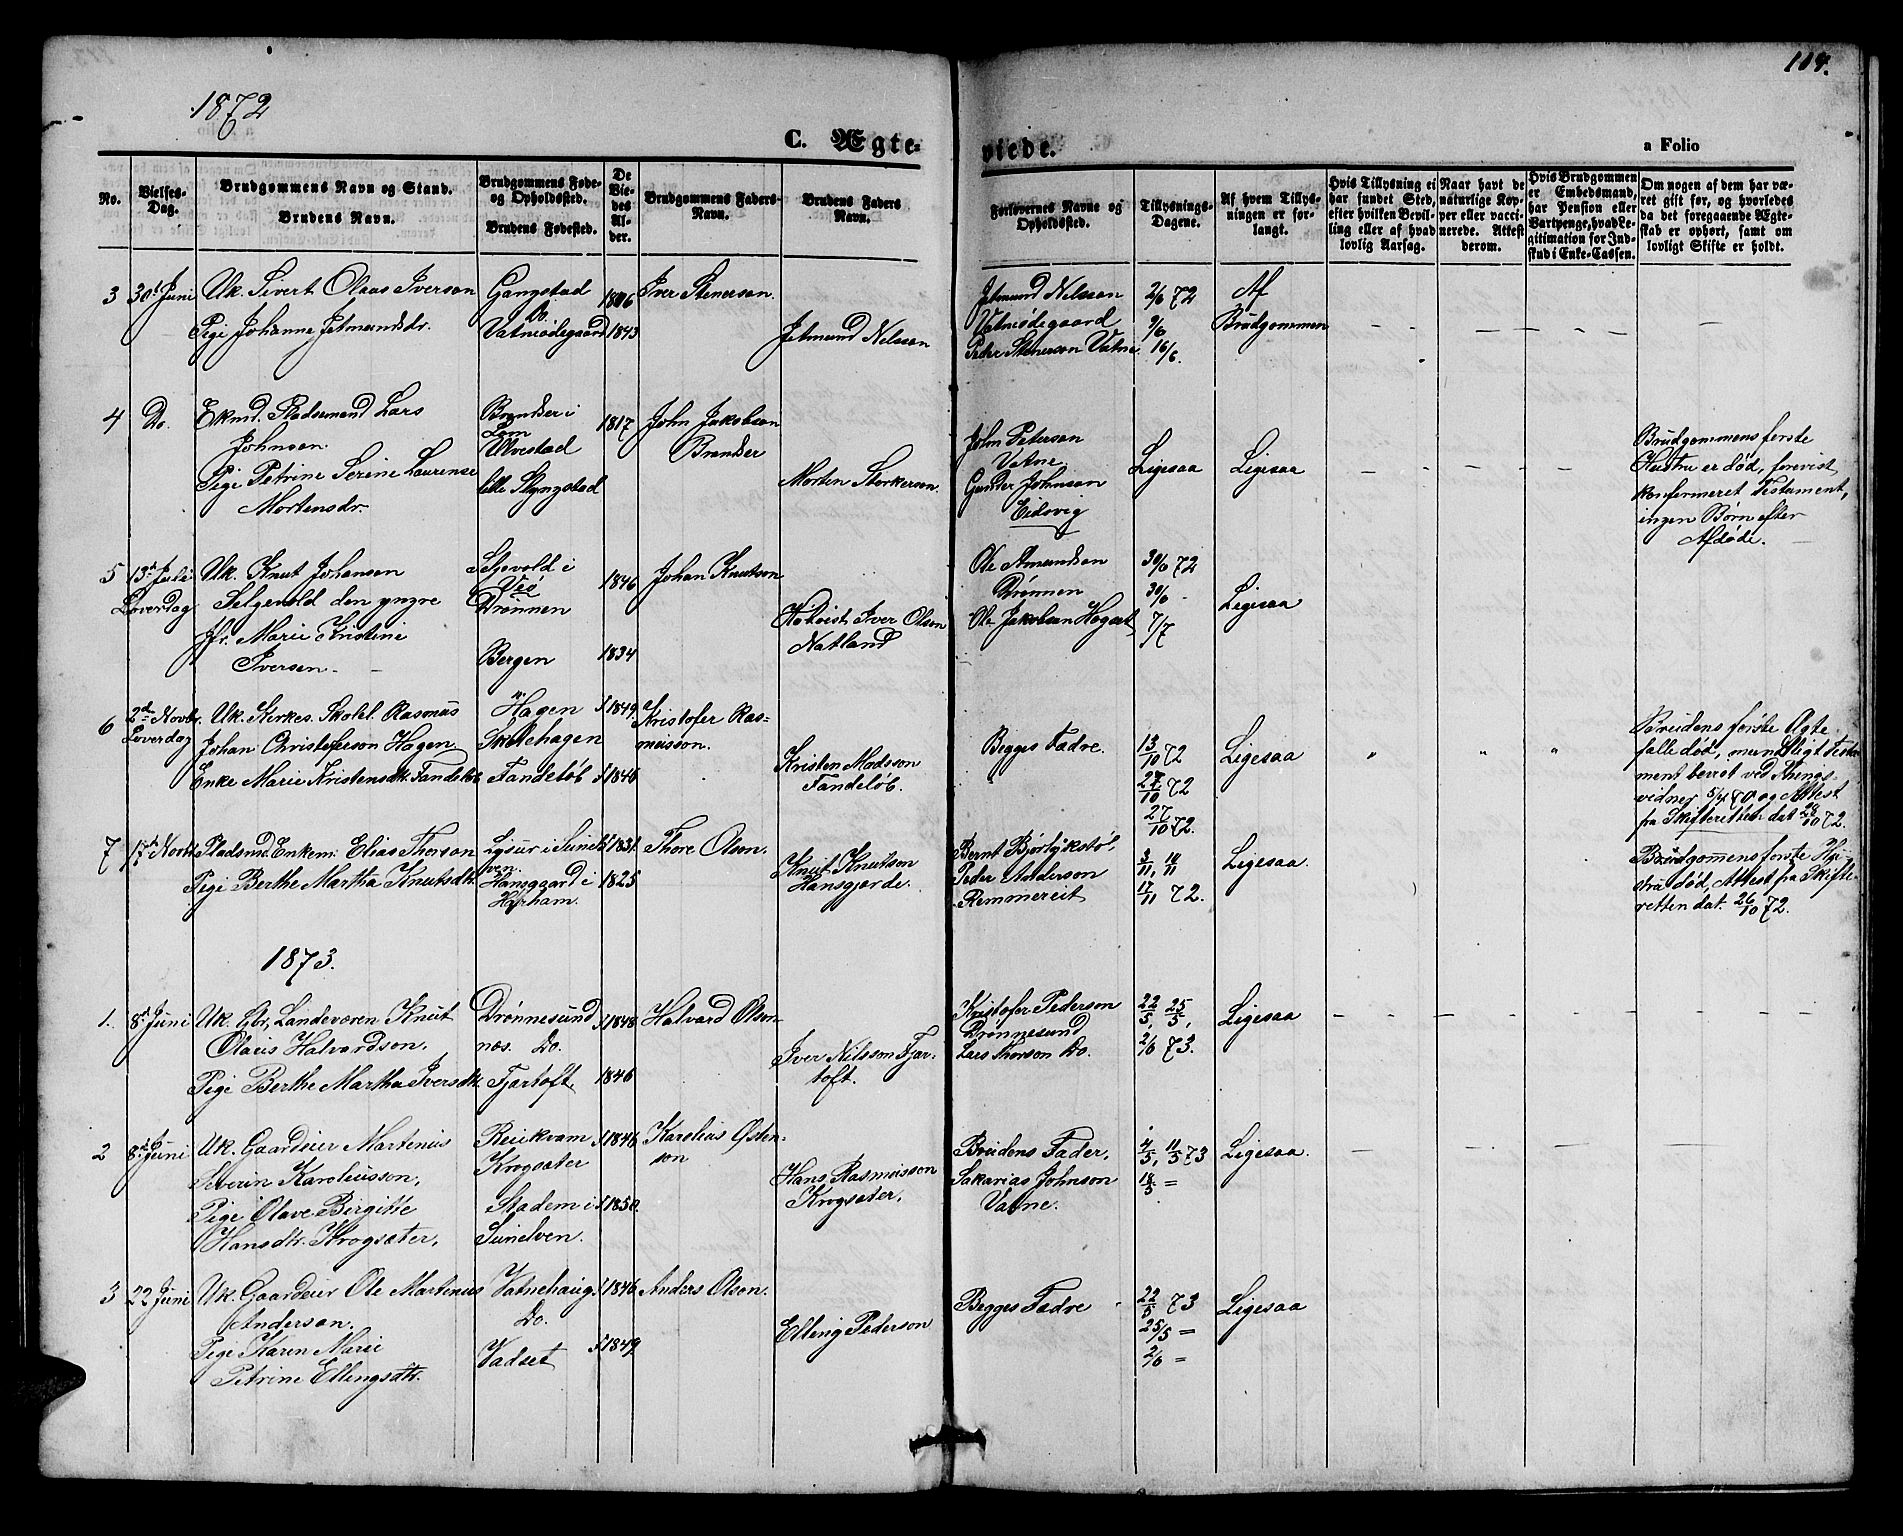 114.
1872
C. Ægte-
viede.
a Folio
No.
Vielses-
Dag.
Brudgommens Navn og Stand.
Brudens Navn.
Brudgommens Føde-
og Opholdssted.
Brudens Fødested.
De
Vie-
des
Al-
der.
Brudgommens Faders
Navn.
Brudens Faders
Navn.
Forlovernes Navne og
Opholdssted.
Tillysnings-
Dagene.
Af hvem Tillys-
ningen er for-
langt.
Hvis Tillysning ei
har fundet Sted,
efter hvilken Bevil-
ling eller af hvad
lovlig Aarsag.
Naar havt de
naturlige Kop-
per eller vacci-
nerede. Attest
derom.
Hvis Brudgommen
er Embedsmand,
har Pension eller
Vartpenge, hvad Le-
gitimation for Ind-
skud i Enke-Cassen.
Om nogen af dem har væ-
ret gift før, og hvorledes
da det foregaaende Ægte-
skab er ophørt, samt om
lovligt Skifte er holdt.
3 30t Juni
Uk. Sivert Olaas Iverson
Pige Johanne Jetmundsdr.
Gangstad
Do.
Vatneødegaard
1843
Iver Stenerson.
Jetmund Nilsson
Jetmund Nilsson
Vatneødegaard
Peder Stenerson Vatne
2/6 72
9/6
16/6.
Af
Brudgommen
4 Do.
Ekmd. Pladsemand Lars
Johnson
Pige Petrine Serine Laurense
Mortensdr.
Brandser i
Lom
Ulvestad
lille Slyngstad
1817
John Jakobson
Brandser
Morten Storkerson.
John Peterson
Vatne
Gunder Johnson
Eidsvig
Ligesaa
Ligesaa
Brudgommens første
Hustru er død, forevist
konfirmeret Testament,
ingen Børn efter
Afdøde.
5 13de Juli
Løverdag
Uk. Knut Johanson
Selgevold den yngre
Jfr. Marie Kristine
Iversen
Selgevold i
Veø
Drønnen
Bergen
1846
1834
Johan Knutson
Iver Olson
Natland
Ole Amundson
Drønnen
Ole Jakobson
30/6 72
30/6
7/7
Ligesaa
6 2den Novbr.
Løverdag
Uk. Kirkes. Skolel. Rasmus
Johan Christoferson Hagen
Enke Marie Kristensdtr. Tandeløb
Hagen
Tandeløb
1849
1846
Kristofer Ras-
musson.
Kristen Madsson
Tandeløb.
Begges Fædre.
13/10 72
27/10 72
27/10 72.
Ligesaa
Brudens første Ægte
falle død, mundtligt Testa
ment bevist ved Things-
vidner 5/4 70 og Attest
fra Skifteretten dat. 28/10 72.
7 17de Novbr.
Pladsmd. Enkem. Elias Thorson
Pige Berthe Martha Knutsdtr.
i Sunel-
ven.
Hansgaard i
Harham.
1831.
1825
Thore Olson.
Knut Knutson
Hansgjerde.
Bernt
Peder Anderson
Remmereit
3/11, 10/11
17/11 72.
Ligesaa.
Brudgommens første Hu-
stru død, Attest fra Skifte-
retten dat. 26/10 72.
1873.
1. 8de Juni
Uk. Gbr. Landeværn Knut
Olaus Halvardson.
Pige Berthe Martha Iversdtr.
Drønnesund
næs. Do.
Fjærtoft
1848
1846
Halvard Olson
Iver Nilsson Fjær-
toft.
Kristofer Pederson
Drønnesund
Lars Thorson Do.
22/5, 25/5,
2/6 73.
Ligesaa
2 8de Juni
Uk. Gaardeier Martinus
Severin Karoliusson,
Pige Olave Birgitte
Hansdtr. Krogsæter,
Reiekvam
Krogsæter
Stadem i
Sunelven.
1846
1850.
Karolius Østen-
son
Hans Rasmusson
Krogsæter,
Brudens Fader,
Sakarias Johnson
Vatne.
4/5, 11/5 73
18/5 =
Ligesaa.
3 22 Juni
Uk. Gaardeier Ole Martinus
Anderson.
Pige Karen Marie
Petrine Ellingsdtr.
Vatnehaug
Do.
Vadset
1846
1849
Anders Olson.
Elling Pederson
Begges Fædre
22/5 73
25/5 =
2/6 =
Ligesaa